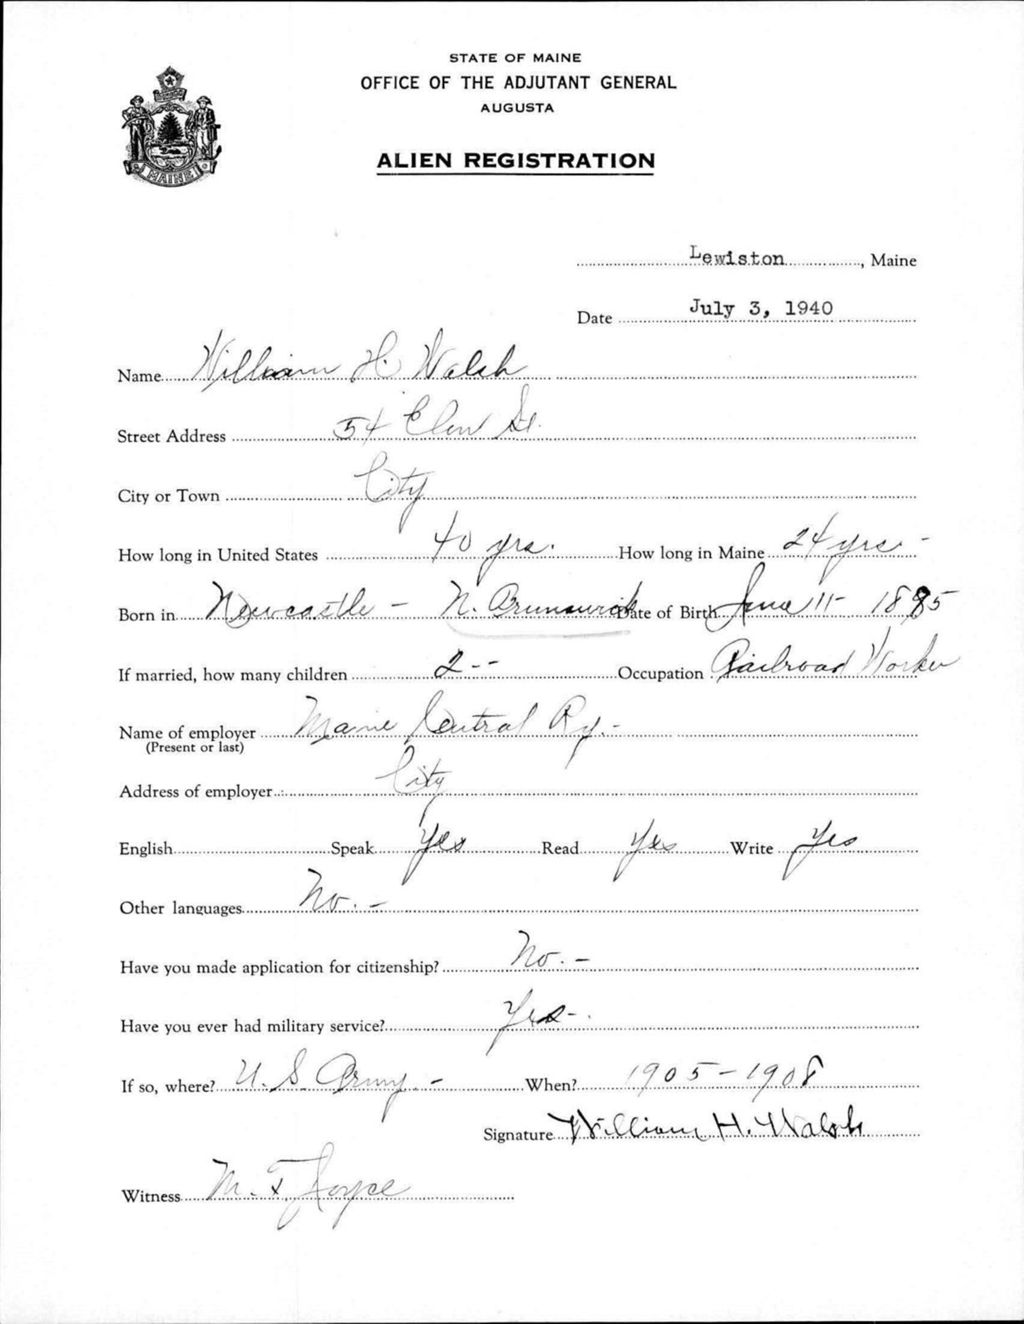 STATE OF MAINE
OFFICE OF THE ADJUTANT GENERAL
AUGUSTA
ALIEN REGISTRATION
MAINE
Lewiston, Maine
Date July 3, 1940
Name William H. Walsh
Street Address 54 Elm St.
City or Town City
How long in United States 40 yrs. How long in Maine 24 yrs -
Born in Newcastle - N. Brunswick Date of Birth June 11 - 1885
If married, how many children 2 - - Occupation Railroad Worker
Name of employer Maine Central Ry. -
(Present or last)
Address of employer City
English Speak Yes Read Yes Write Yes
Other languages No. -
Have you made application for citizenship? No. -
Have you ever had military service? Yes - .
If so, where? U. S. Army. - When? 1905 - 1908
Signature William H. Walsh
Witness M. F. Joyce